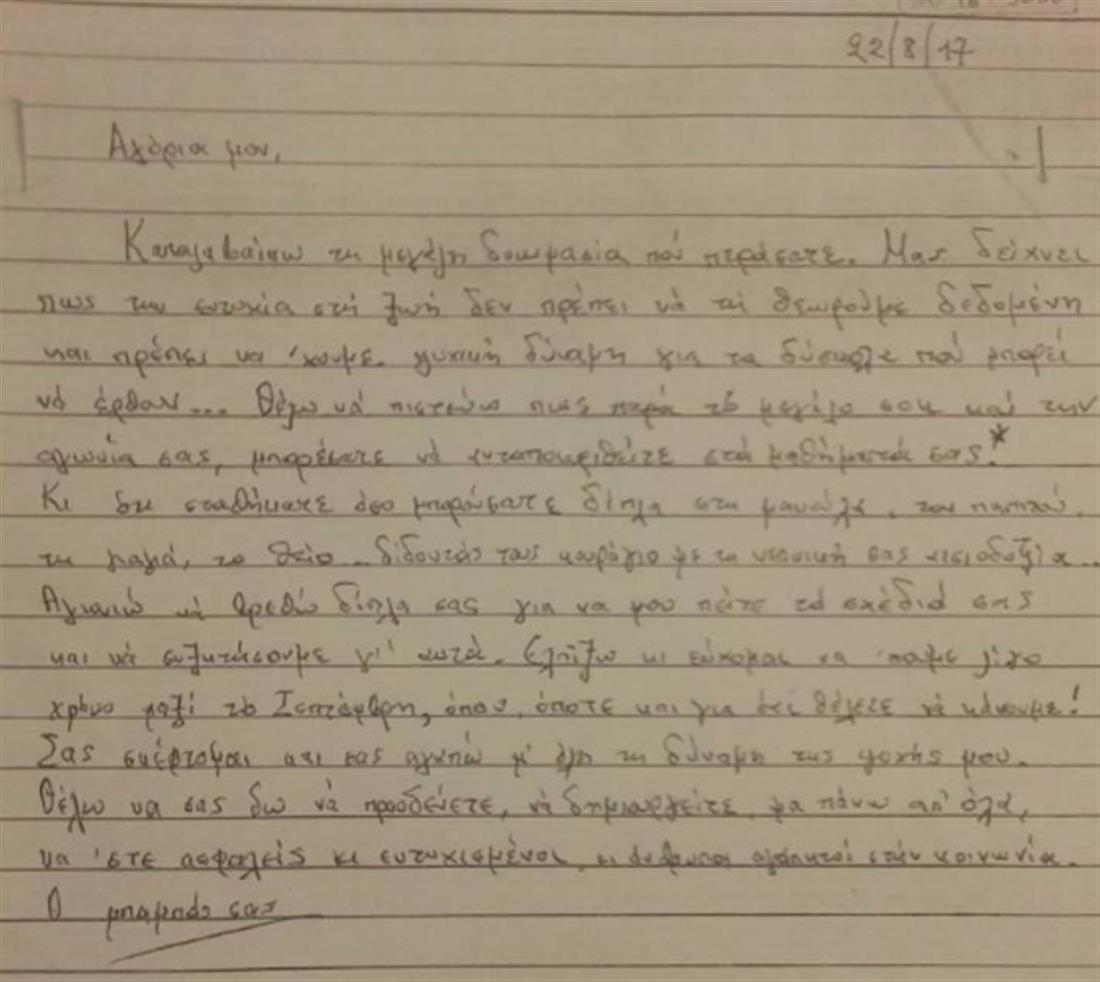 22/8/17
Αγόρια μου,
Καταλαβαίνω τη μεγάλη δοκιμασία πού περάσατε. Μας δείχνει
πως την ευτυχία στή ζωή δεν πρέπει νά τή θεωρούμε δεδομένη
και πρέπει να 'χουμε ψυχική δύναμη για τα δύσκολα πού μπορεί
νά έρθουν... Θέλω νά πιστεύω πως παρά τό μεγάλο σοκ καί την
αγωνία σας, μπορέσατε νά ανταποκριθείτε στά μαθήματά σας.*
Κι ότι σταθήκατε όσο μπορούσατε δίπλα στη μανούλα, τον παππού,
τη γιαγιά, το θείο.. δίδοντάς τους κουράγιο με τη νεανική σας αισιοδοξία...
Αγωνιώ νά βρεθώ δίπλα σας για να μου πείτε τά σχέδιά σας
και νά συζητήσουμε γι' αυτά. Ελπίζω κι εύχομαι να 'χουμε λίγο
χρόνο μαζί τό Σεπτέμβρη, όπου, όποτε και για ότι θέλετε νά κάνουμε!
Σας σκέφτομαι και σας αγαπώ μ' όλη τη δύναμη της ψυχής μου.
Θέλω να σας δω νά προοδεύετε, νά δημιουργείτε, μα πάνω απ' όλα,
να 'στε ασφαλείς κι ευτυχισμένοι, κι άνθρωποι αγαπητοί στήν κοινωνία.
Ο μπαμπάς σας